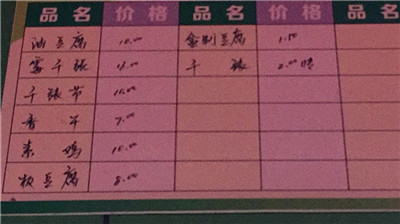 品名 价格 品名 价格 品
油豆腐 10.00 盒制豆腐 1.50
千张 2.00
千张节 10.00
香干 7.00
素鸡 10.00
板豆腐 8.00